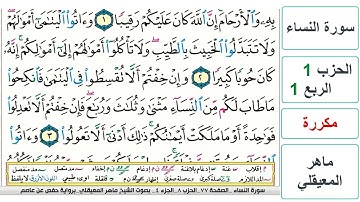 سورة النساء
الحزب 1
الربع 1
مكررة
ماهر
المعيقلي
بِهِۦ وَٱلْأَرْحَامَ إِنَّ ٱللَّهَ كَانَ عَلَيْكُمْ رَقِيبًا ١ وَءَاتُوا۟ ٱلْيَتَـٰمَىٰٓ أَمْوَٰلَهُمْ
وَلَا تَتَبَدَّلُوا۟ ٱلْخَبِيثَ بِٱلطَّيِّبِ وَلَا تَأْكُلُوٓا۟ أَمْوَٰلَهُمْ إِلَىٰٓ أَمْوَٰلِكُمْ إِنَّهُۥ
كَانَ حُوبًا كَبِيرًا ٢ وَإِنْ خِفْتُمْ أَلَّا تُقْسِطُوا۟ فِى ٱلْيَتَـٰمَىٰ فَٱنكِحُوا۟
مَا طَابَ لَكُم مِّنَ ٱلنِّسَآءِ مَثْنَىٰ وَثُلَـٰثَ وَرُبَـٰعَ فَإِنْ خِفْتُمْ أَلَّا تَعْدِلُوا۟
فَوَٰحِدَةً أَوْ مَا مَلَكَتْ أَيْمَـٰنُكُمْ ذَٰلِكَ أَدْنَىٰٓ أَلَّا تَعُولُوا۟ ٣ وَءَاتُوا۟
سورة النساء . الصفحة ٧٧ . الحزب ٨ . الجزء ٤ . بصوت الشيخ ماهر المعيقلي . برواية حفص عن عاصم